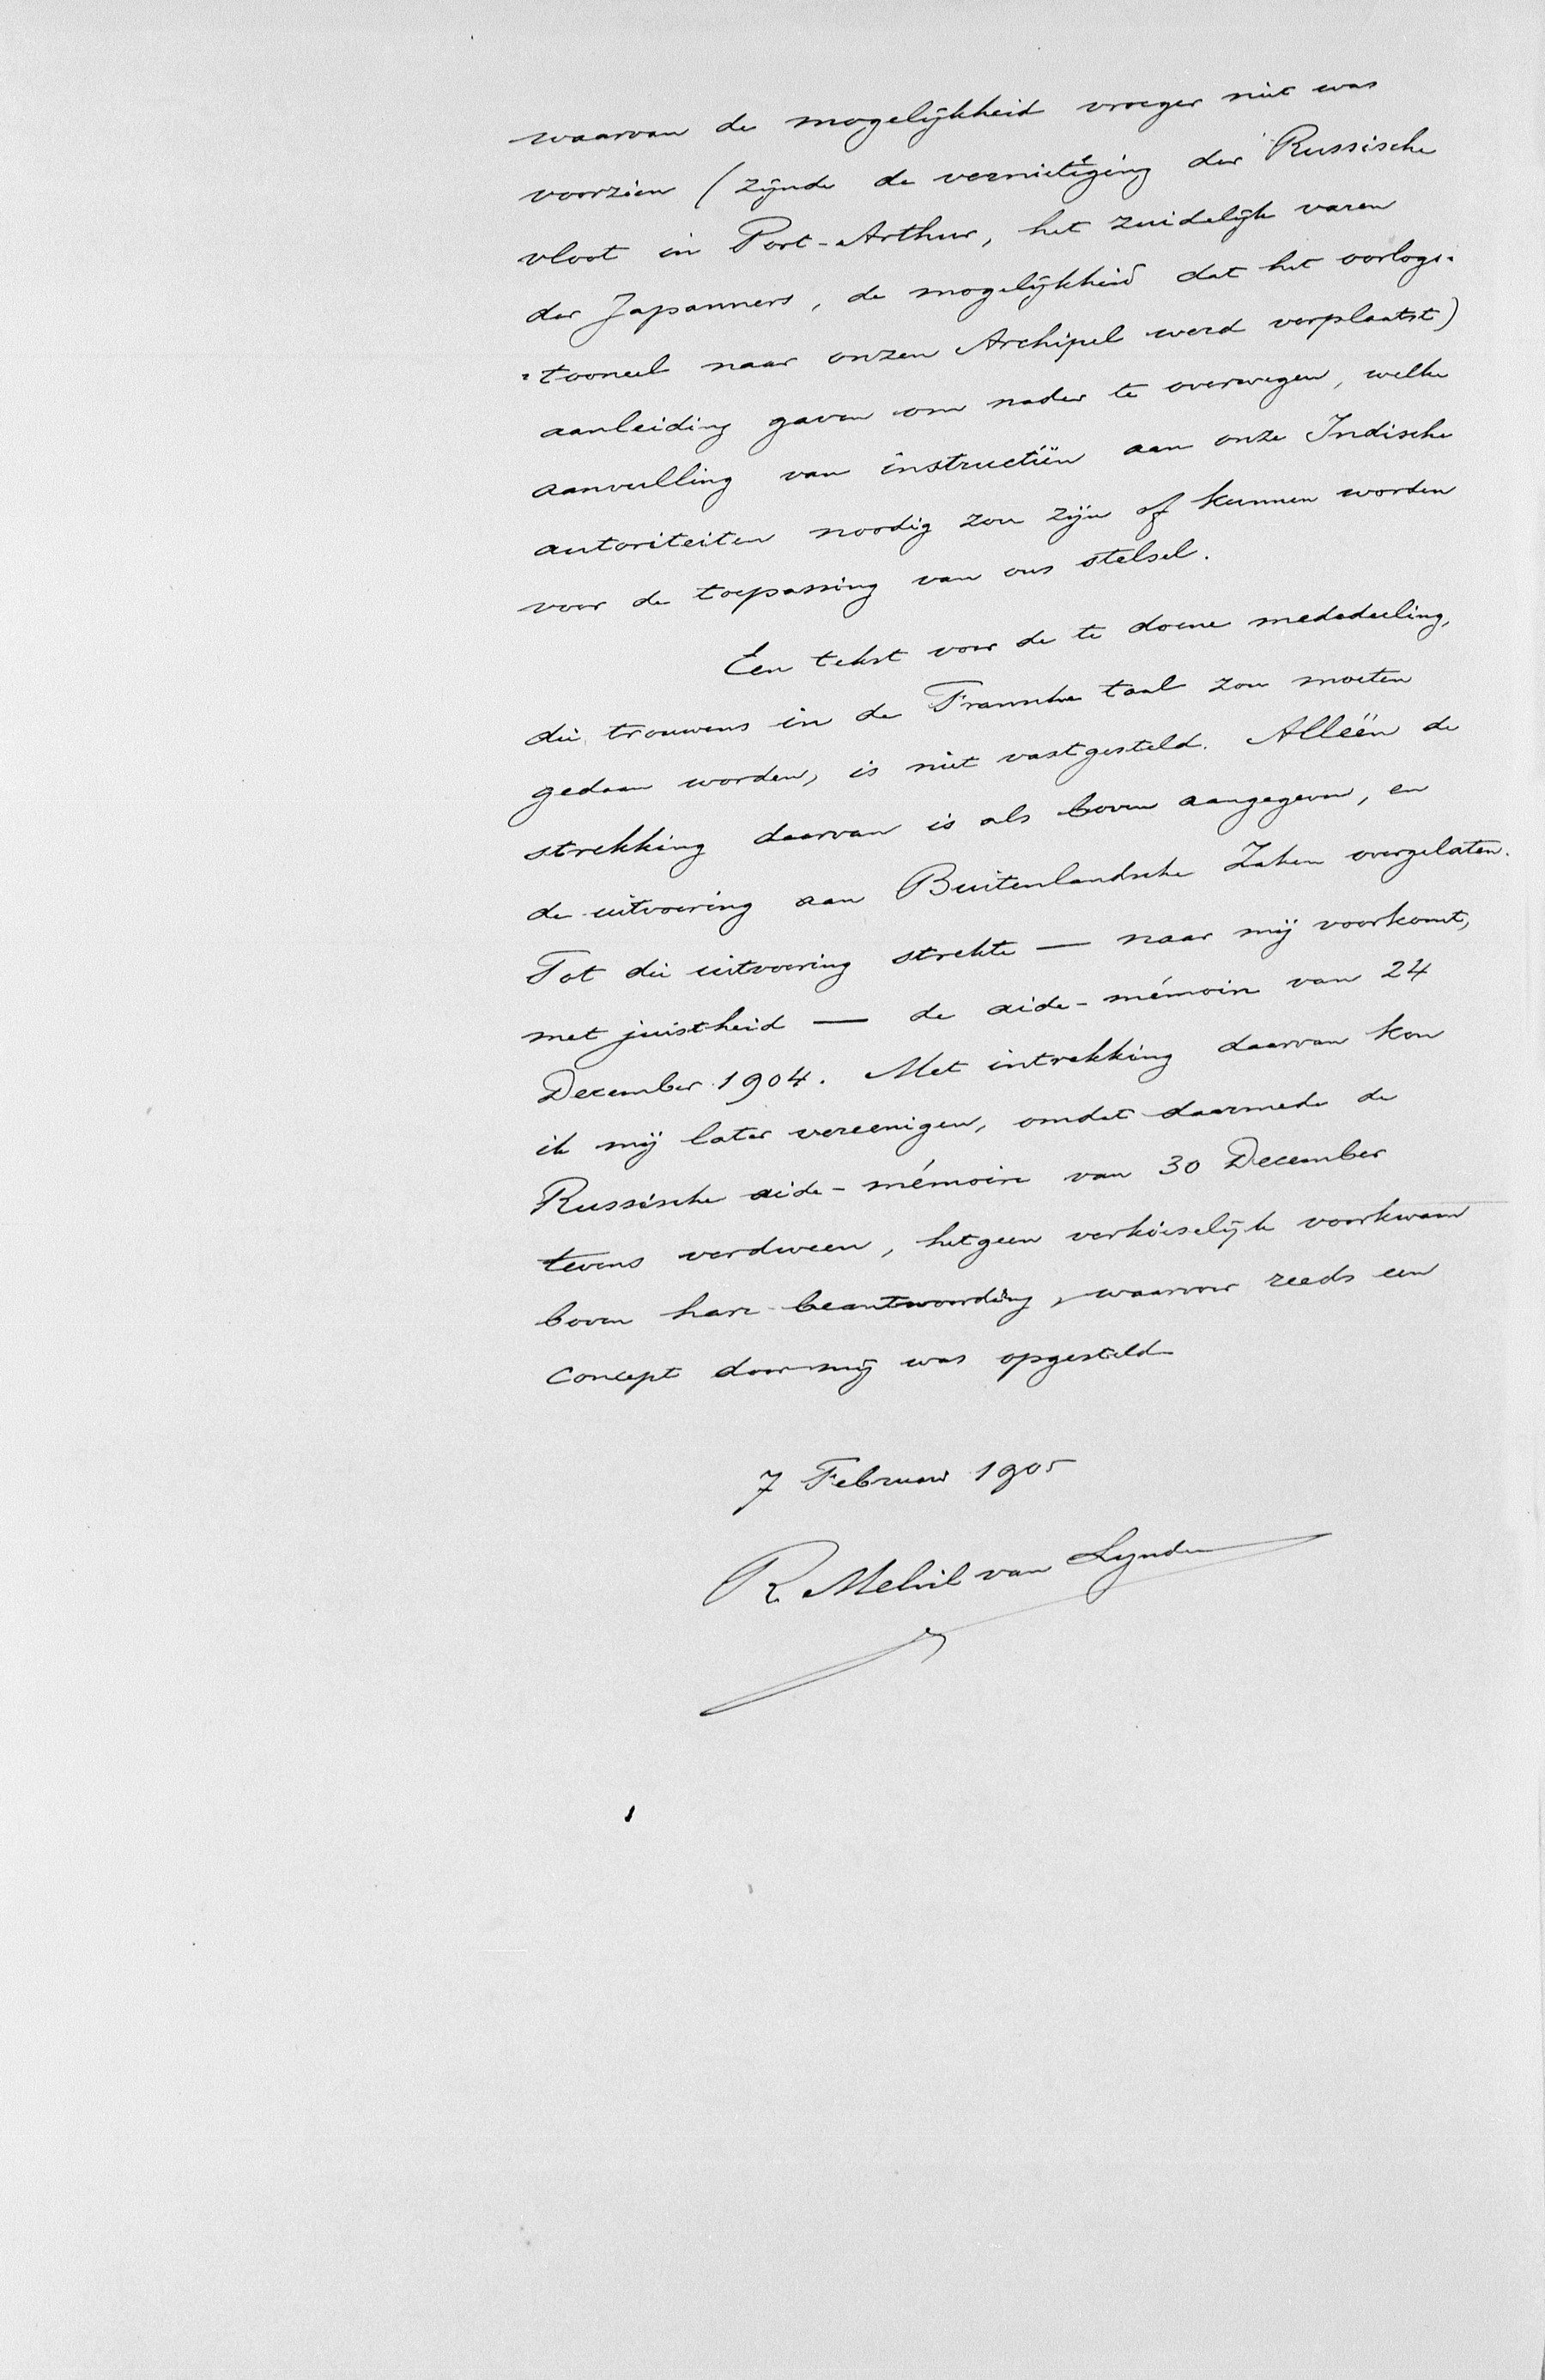 waarvan de mogelijkheid vroeger niet was
voorzien (zijnde de vernietiging der Russische
vloot in Port-Arthur, het zuidelijk varen
der Japanners, de mogelijkheid dat het oorlogs-
tooneel naar onzen Archipel werd verplaatst)
aanleiding gaven om nader te overwegen, welke
aanvulling van instructiën aan onze Indische
autoriteiten noodig zou zijn of kunnen worden
voor de toepassing van ons stelsel.
Een tekst voor de te doene mededeeling,
die trouwens in de Fransche taal zou moeten
gedaan worden, is niet vastgesteld. Alléén de
strekking daarvan is als boven aangegeven, en
de uitvoering aan Buitenlandsche Zaken overgelaten.
Tot die uitvoering strekte — naar mij voorkomt,
met juistheid — de aide-mémoire van 24
December 1904. Met intrekking daarvan kon
ik mij later vereenigen, omdat daarmede de
Russische aide-mémoire van 30 December
tevens verdween, hetgeen verkieselijk voorkwam
boven hare beantwoording, waarvoor reeds een
concept door mij was opgesteld
7 Februari 1905
R. Melvil van Lynden